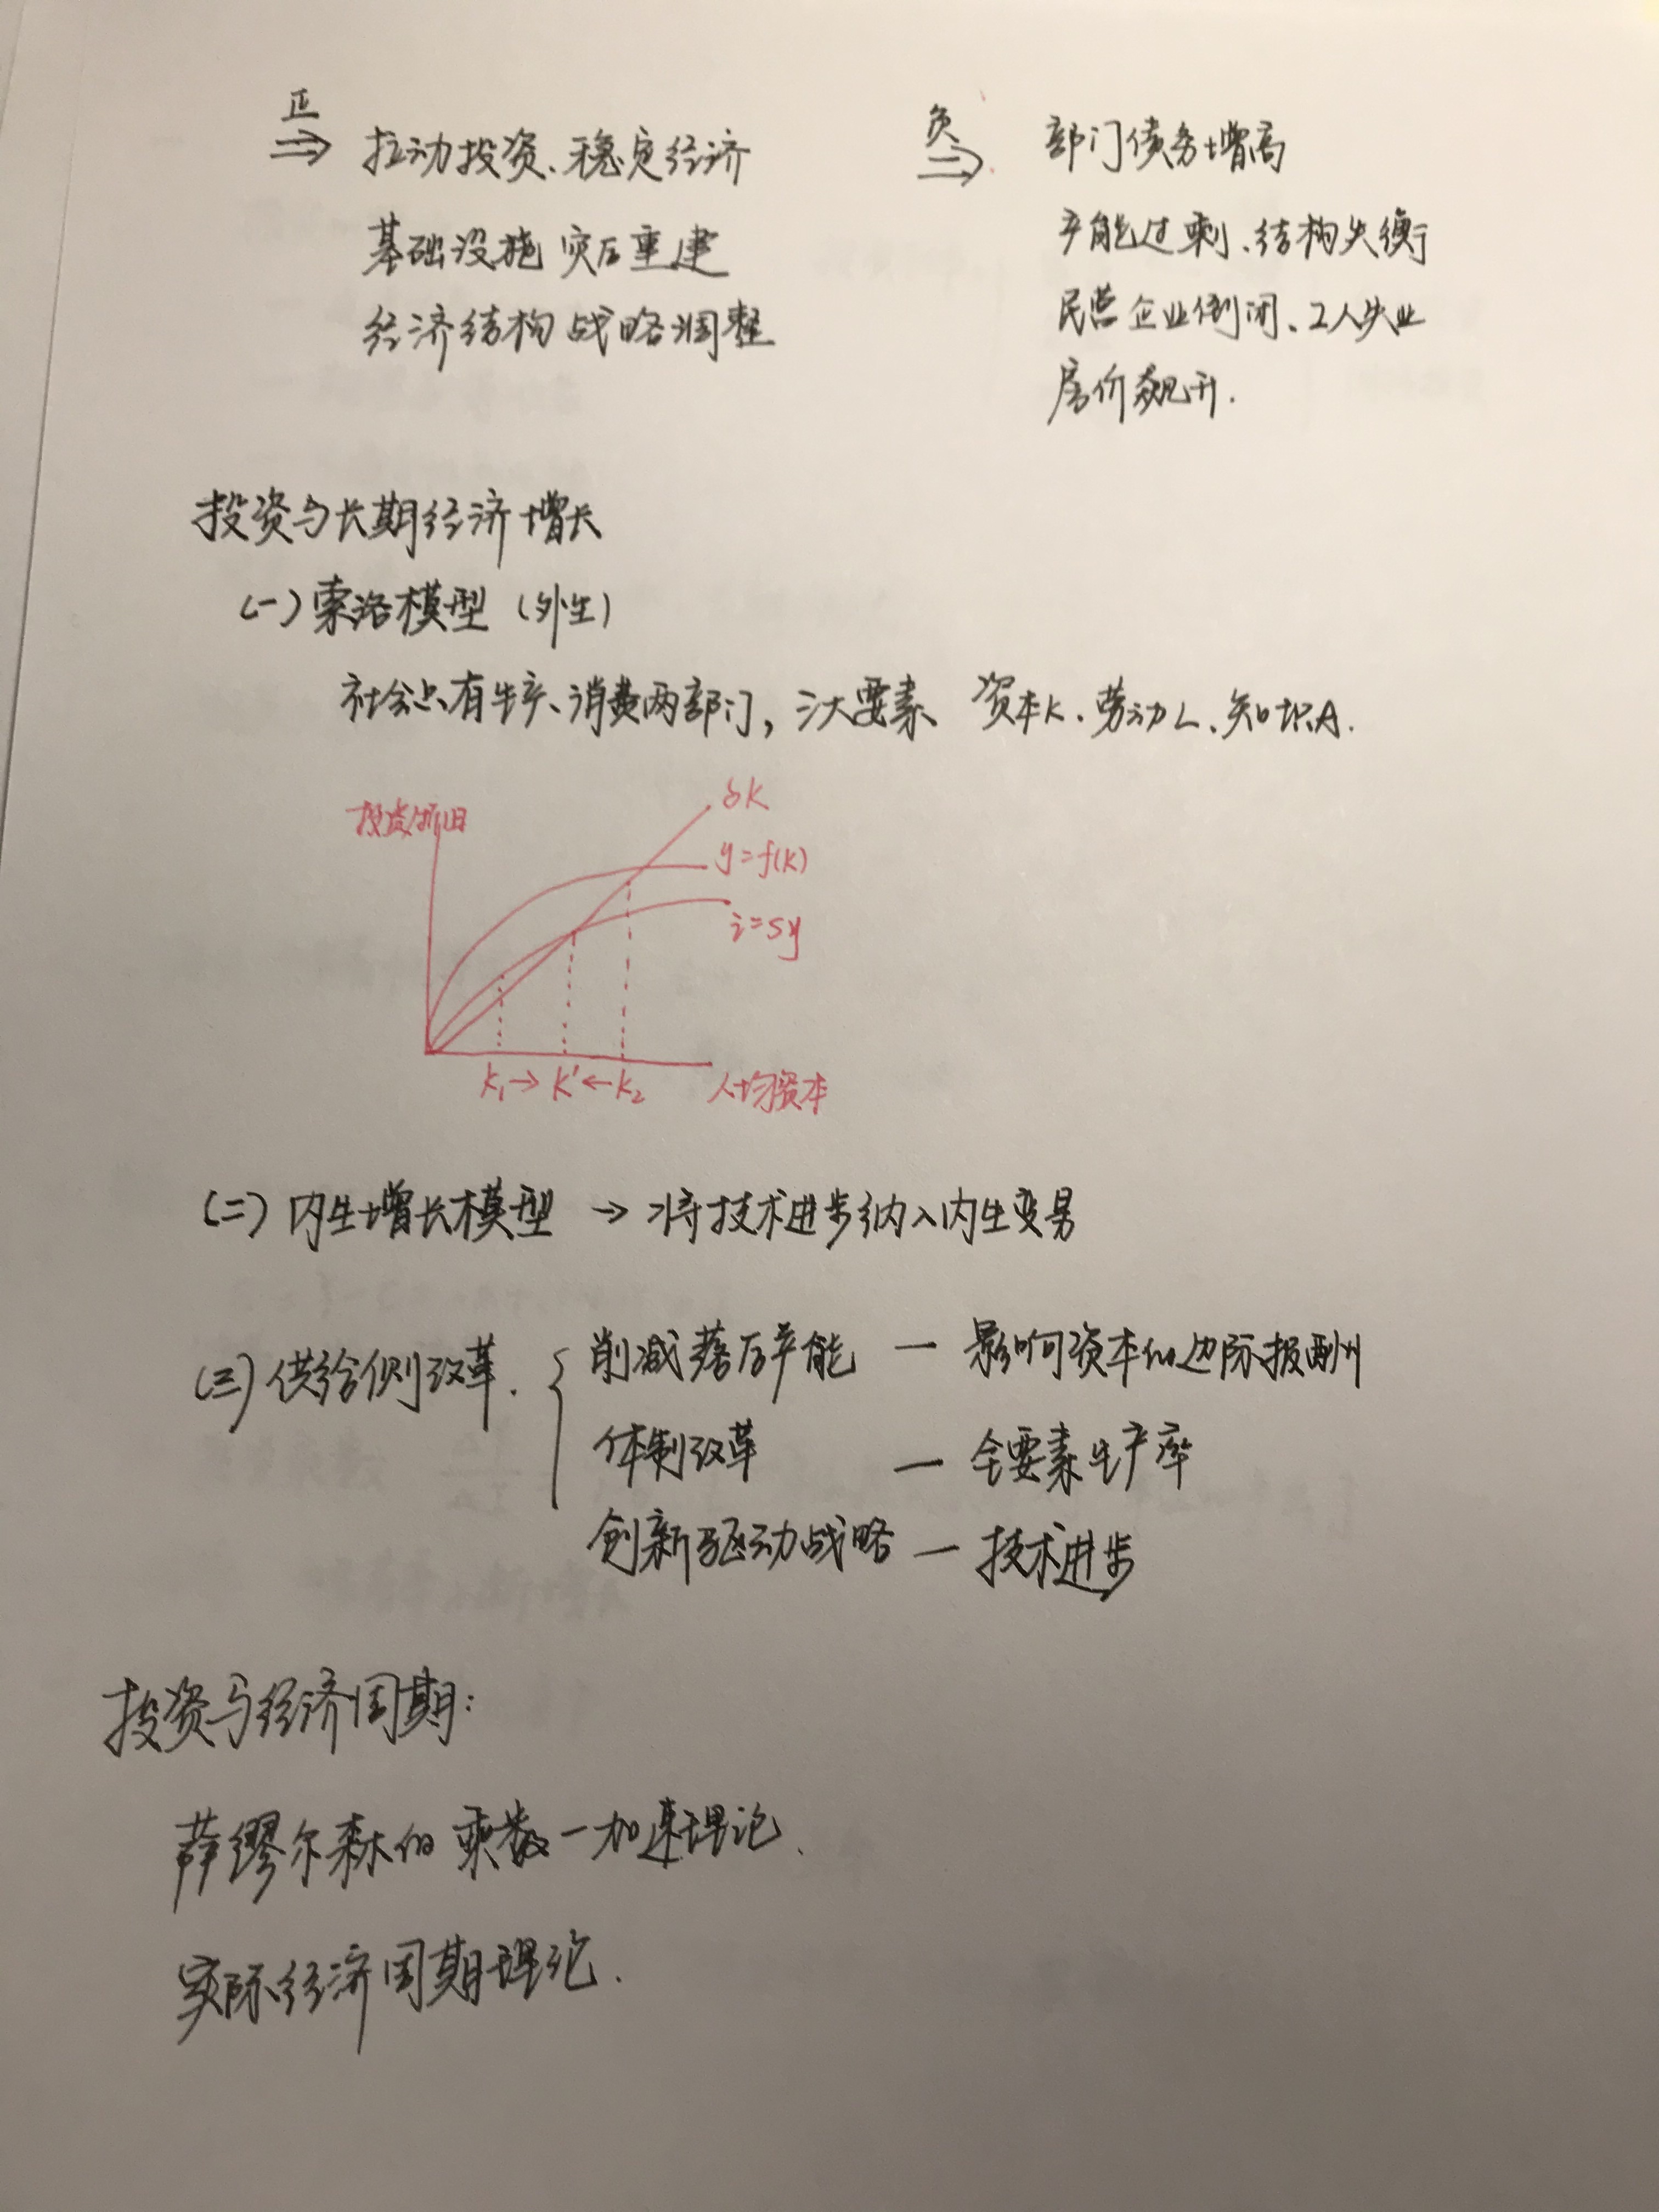 正
⇒ 拉动投资、稳定经济
基础设施 灾后重建
经济结构战略调整
负
⇒ 部门债务增高
产能过剩、结构失衡
民营企业倒闭、工人失业
房价飙升.
投资与长期经济增长
(一)索洛模型 (外生)
社会只有生产、消费两部门,三大要素 资本K、劳动L、知识A.
投资/折旧
δK
y=f(k)
i=sy
k₁→ k' ←k₂ 人均资本
(二)内生增长模型 → 将技术进步纳入内生变易
(三)供给侧改革. { 削减落后产能 — 影响资本的边际报酬
体制改革 — 全要素生产率
创新驱动战略 — 技术进步
投资与经济周期:
萨缪尔森的乘数—加速理论、
实际经济周期理论.